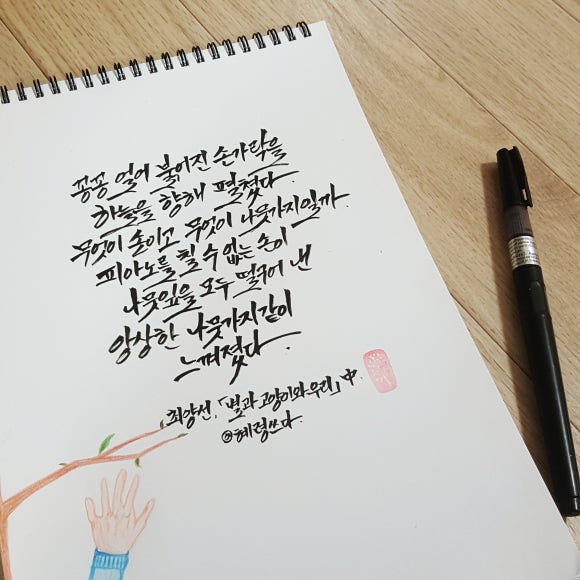 꽁꽁 얼어 붉어진 손가락을
하늘을 향해 펼쳤다.
무엇이 손이고 무엇이 나뭇가지일까.
피아노를 칠 수 없는 손이
나뭇잎을 모두 떨구어 낸
앙상한 나뭇가지같이
느껴졌다.
최양선, 「별과 고양이와 우리」 中.
@혜정쓰다.